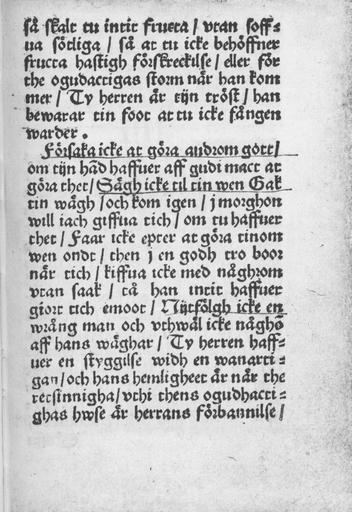 så skalt tu intit fructa / vtan soff=
ua sötliga / så at tu icke behöffuer
fructa hastigh förskreckilse / eller för
the ogudactigas storm når han kom
mer / Ty herren år tijn tröst / han
bewarar tin foot at tu icke fången
warder .
Försaka icke at göra androm gott /
om tijn hãd haffuer aff gudi mact at
göra thet / Sågh icke til tin wen Gak
tin wågh / och kom igen / j morghon
will iach giffua tich / om tu haffuer
thet / Faar icke epter at göra tinom
wen ondt / then j en godh tro boor
når tich / kiffua icke med någhrom
vtan saak / tå han intit haffuer
giort tich emoot / Nijtfölgh icke en
wrång man och vthwål icke någhõ
aff hans wåghar / Ty herren haff=
uer en styggilse widh en wanarti=
gan / och hans hemligheet år når the
retsinnigha / vthi thens ogudhacti=
ghas hwse år herrans förbannilse /